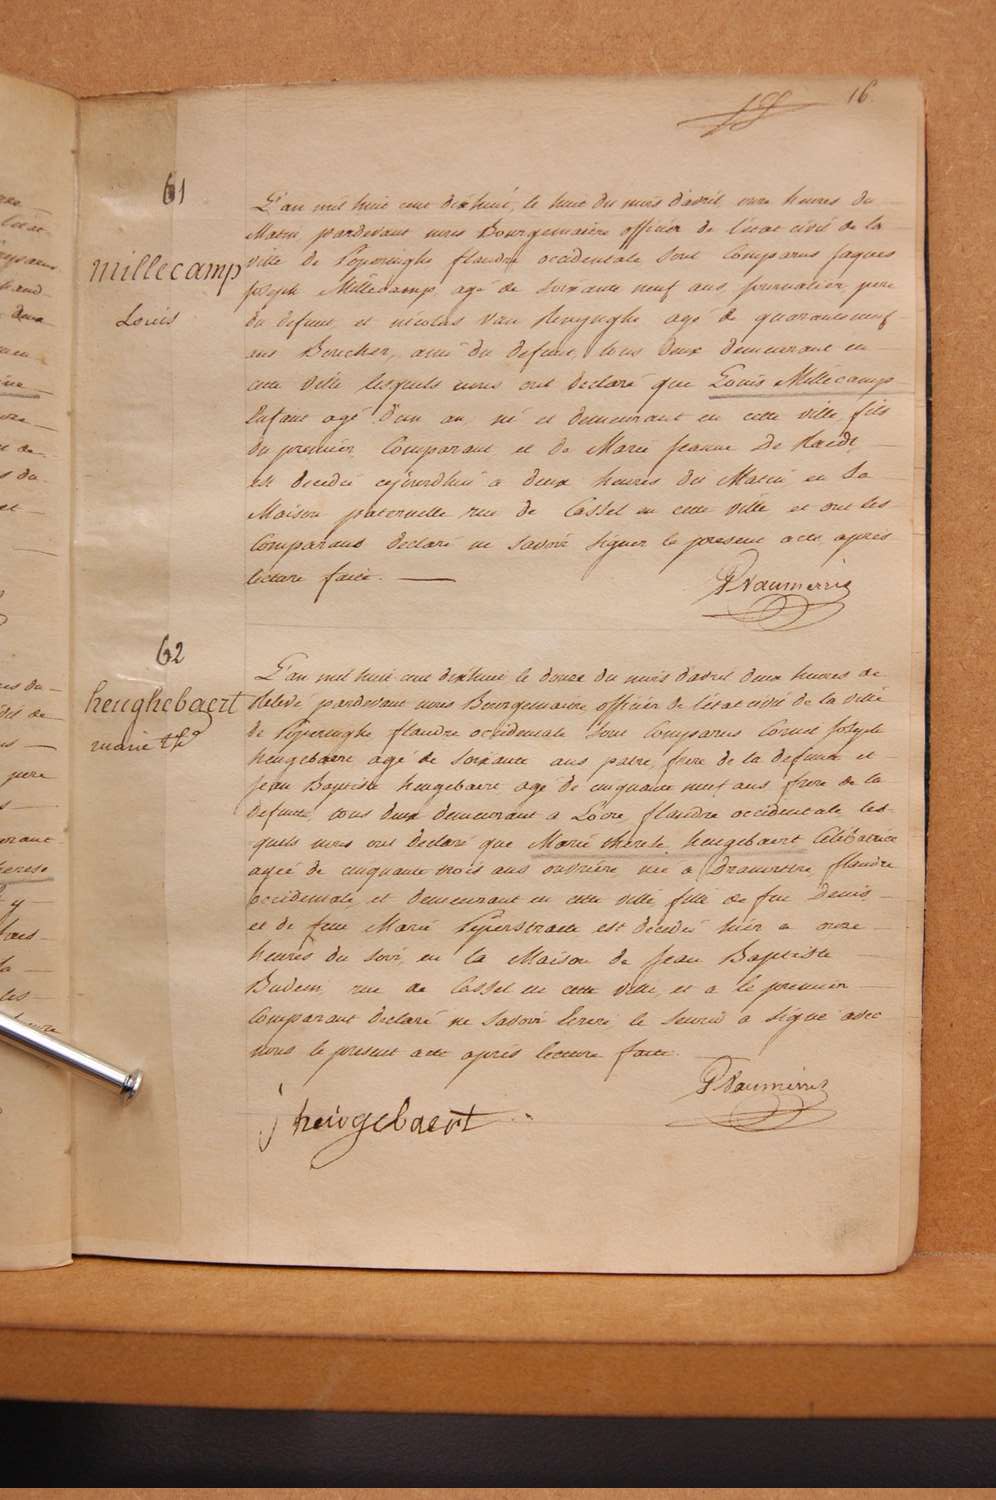 16.
61
Millecamp
Louis
L'an mil huit cent dixhuit, le huit du mois d'avril onze heures du
Matin pardevant nous Bourguemaitre officier de l'état civil de la
ville de Poperinghe flandre occidentale sont Comparus Jaques
Joseph Millecamp, agé de soixante neuf ans, journalier pere
du defunt, et nicolas Van
agé de quarante neuf
ans Boucher, ami du defunt, tous deux demeurant en
cette ville lesquels nous ont declaré que Louis Millecamp
Enfant agé d'un an, né et demeurant en cette ville, fils
du premier Comparant et de Marie Jeanne De Haede,
est decedé cejourdhui a deux heures du Matin en la
Maison paternelle rue de Cassel en cette ville et ont les
Comparans declaré ne savoir signer le present acte, après
lecture faite.
62
heughebaert
marie
L'an mil huit cent dixhuit le douze du mois d'avril deux heures de
Relevé pardevant nous Bourguemaitre, officier de l'état civil de la ville
de Poperinghe flandre occidentale sont Comparus Cornil Joseph
heugebaere agé de soixante ans patre, frere de la defunte et
Jean Baptiste heugebaere agé de cinquante neuf ans, frere de la
defunte, tous deux demeurant a Locre, flandre occidentale les-
quels nous ont declaré que Marie therese heugebaert Célibatrice
agée de cinquante trois ans ouvrière, née a Dranoutre, flandre
occidentale, et demeurant en cette ville, fille de feu Denis,
et de feue Marie Peperstraete est decedé hier a onze
heures du soir, en la Maison de Jean Baptiste
rue de Cassel en cette ville, et a le premier
Comparant declaré ne savoir Ecrire le second a signé avec
nous le present acte après lecture faite.
j heugebaert